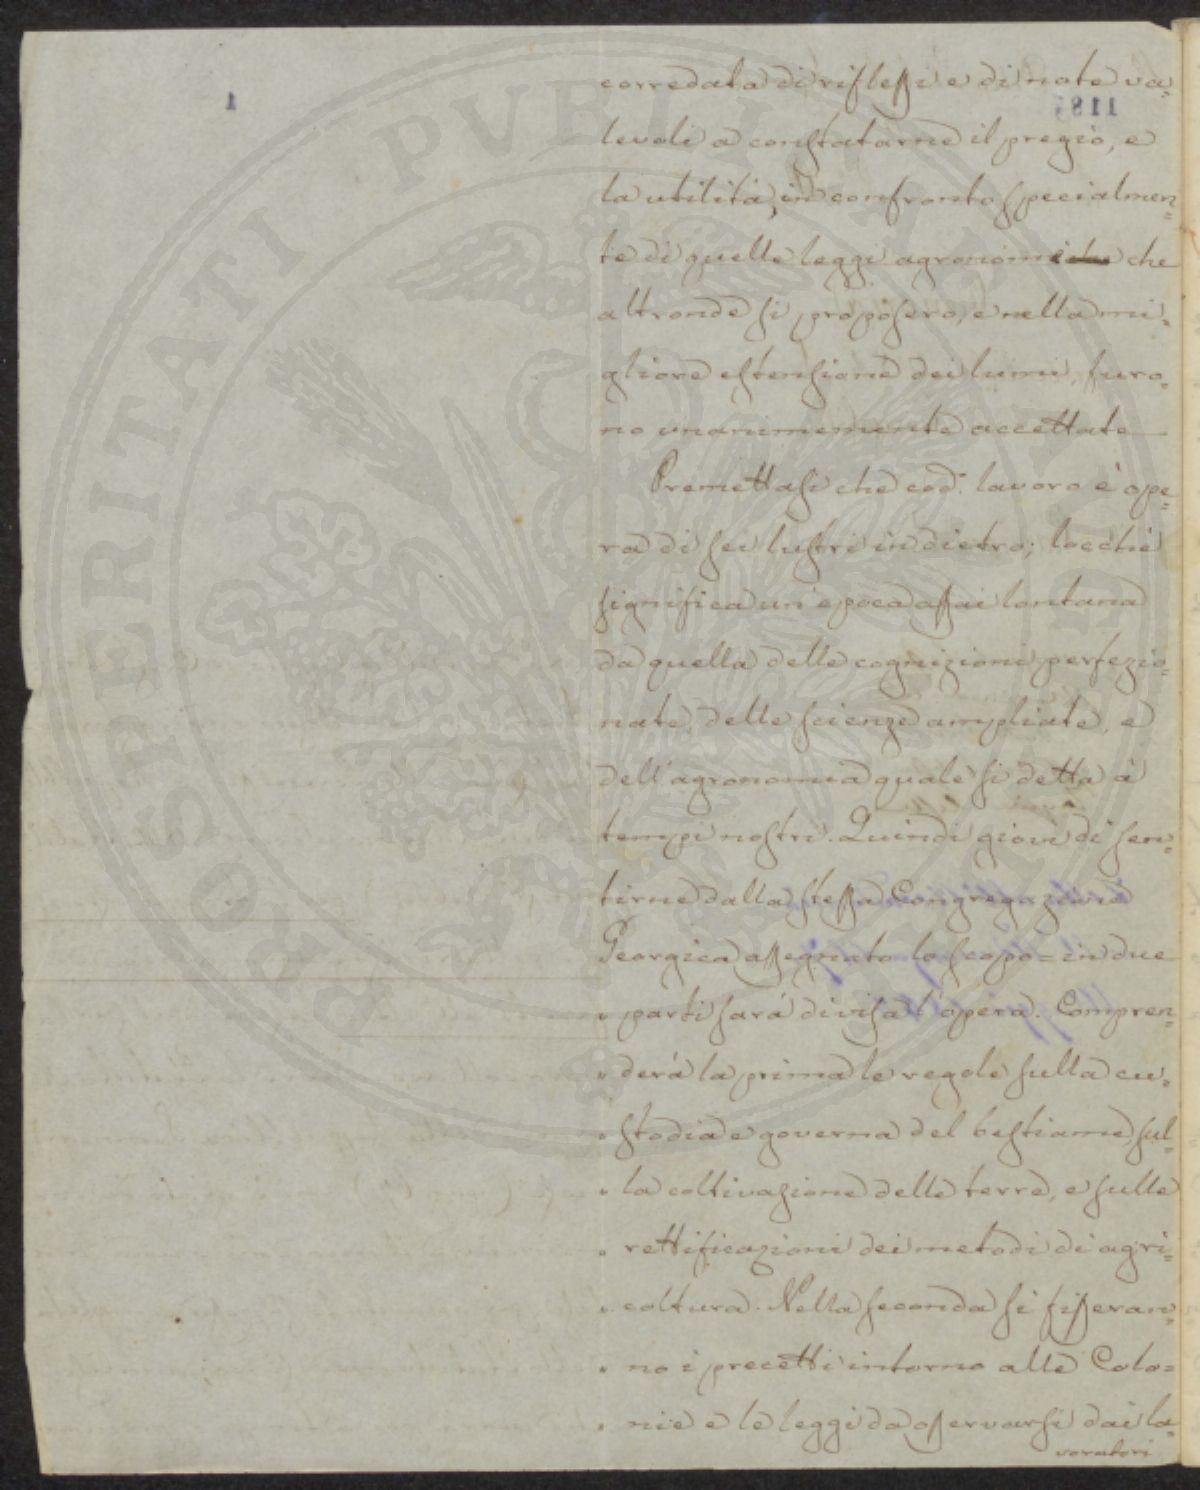 corredata di riflessi e di note va=
levoli a constatarne il pregio, e
la utilità, in confronto specialmen=
te di quelle leggi agronomiche che
altronde si proposero, e nella mi=
gliore estensione dei lumi, furo=
no unanimemente accettate
Premettasi che cod.º lavoro è ope=
ra di sei lustri in dietro; locchè
significa un'epoca assai lontana
da quella delle cognizioni perfezio=
nate, delle scienze ampliate, e
dell'agronomia quale si detta a'
tempi nostri. Quindi giovi di sen=
tirne dalla stessa Congregazione
Georgica assegnato lo scopo = in due
" parti sarà divisa l'opera. Compren=
" derà la prima le regole sulla cu=
" stodia e governa del bestiame, sul=
" la coltivazione delle terre, e sulle
" rettificazioni dei metodi di agri=
" coltura. Nella seconda si fisseran=
" no i precetti intorno alle Colo=
" nie e le leggi da osservarsi dai la=
voratori
PROSPERITATI PVBLICAE